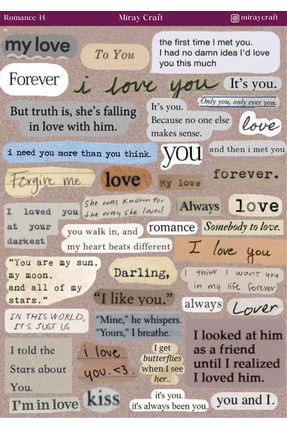 Romance 14
Miray Craft
miraycraft
my love
To You
the first time I met you.
I had no damn idea I'd love
you this much
Forever
i love you
It's you.
But truth is, she's falling
in love with him.
It's you.
Because no one else
makes sense.
Only you, only ever you.
love
i need you more than you think.
you
and then i met you
Forgive me
love
My love
forever.
I loved you
at your
darkest
She was known for
the way she loved
Always
love
you walk in, and
my heart beats different
romance
Somebody to love.
I love you
"You are my sun,
my moon,
and all of my
stars."
Darling,
I think I want you
in my life forever
"I like you."
always
Lover
IN THIS WORLD,
IT'S JUST US
"Mine," he whispers.
"Yours," I breathe.
I looked at him
as a friend
until I realized
I loved him.
I told the
Stars about
You.
i love
you.<3.
I get
butterflies
when I see
her..
I'm in love
kiss
it's you.
it's always been you.
you and I.